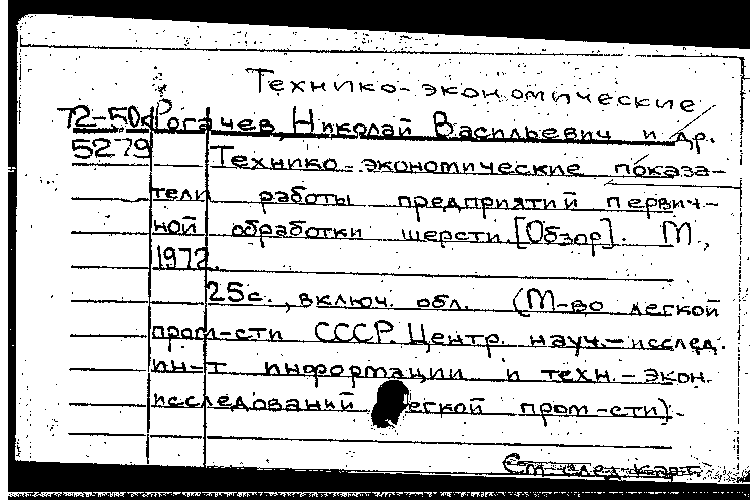 Технико-экономические
72-50к Рогачев, Николай Васильевич и др.
5279 Технико-экономические показа-
тели работы предприятий первич-
ной обработки шерсти. [Обзор]. М.,
1972.
25с., включ. обл. (М-во легкой
пром-сти СССР. Центр. науч.-исслед.
ин-т информации и техн.-экон.
исследований легкой пром-сти).
См. след. карт.